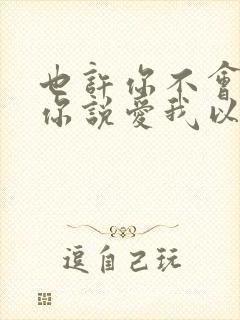 也許你不會
你說愛我以
逗自己玩